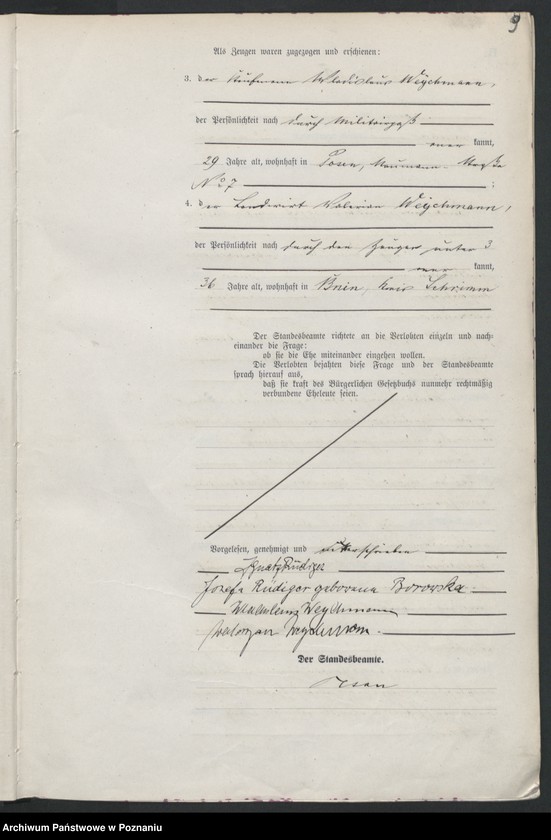 9
Als Zeugen waren zugezogen und erschienen:
3. der Kaufmann Wladislaus Weychmann,
der Persönlichkeit nach durch Militairpaß
kannt,
29 Jahre alt, wohnhaft in Posen, Naumann-Straße
No 7 ;
4. der Landwirt Valerian Weychmann,
der Persönlichkeit nach durch den Zeugen unter 3
kannt,
36 Jahre alt, wohnhaft in Bnin, Kreis Schrimm
Der Standesbeamte richtete an die Verlobten einzeln und nach-
einander die Frage:
ob sie die Ehe miteinander eingehen wollen.
Die Verlobten bejahten diese Frage und der Standesbeamte
sprach hierauf aus,
daß sie kraft des Bürgerlichen Gesetzbuchs nunmehr rechtmäßig
verbundene Eheleute seien.
Vorgelesen, genehmigt und unterschrieben
Ignatz Rüdiger
Josefa Rüdiger geborena Borowska
Weychmann
Weychmann
Der Standesbeamte.
Archiwum Państwowe w Poznaniu